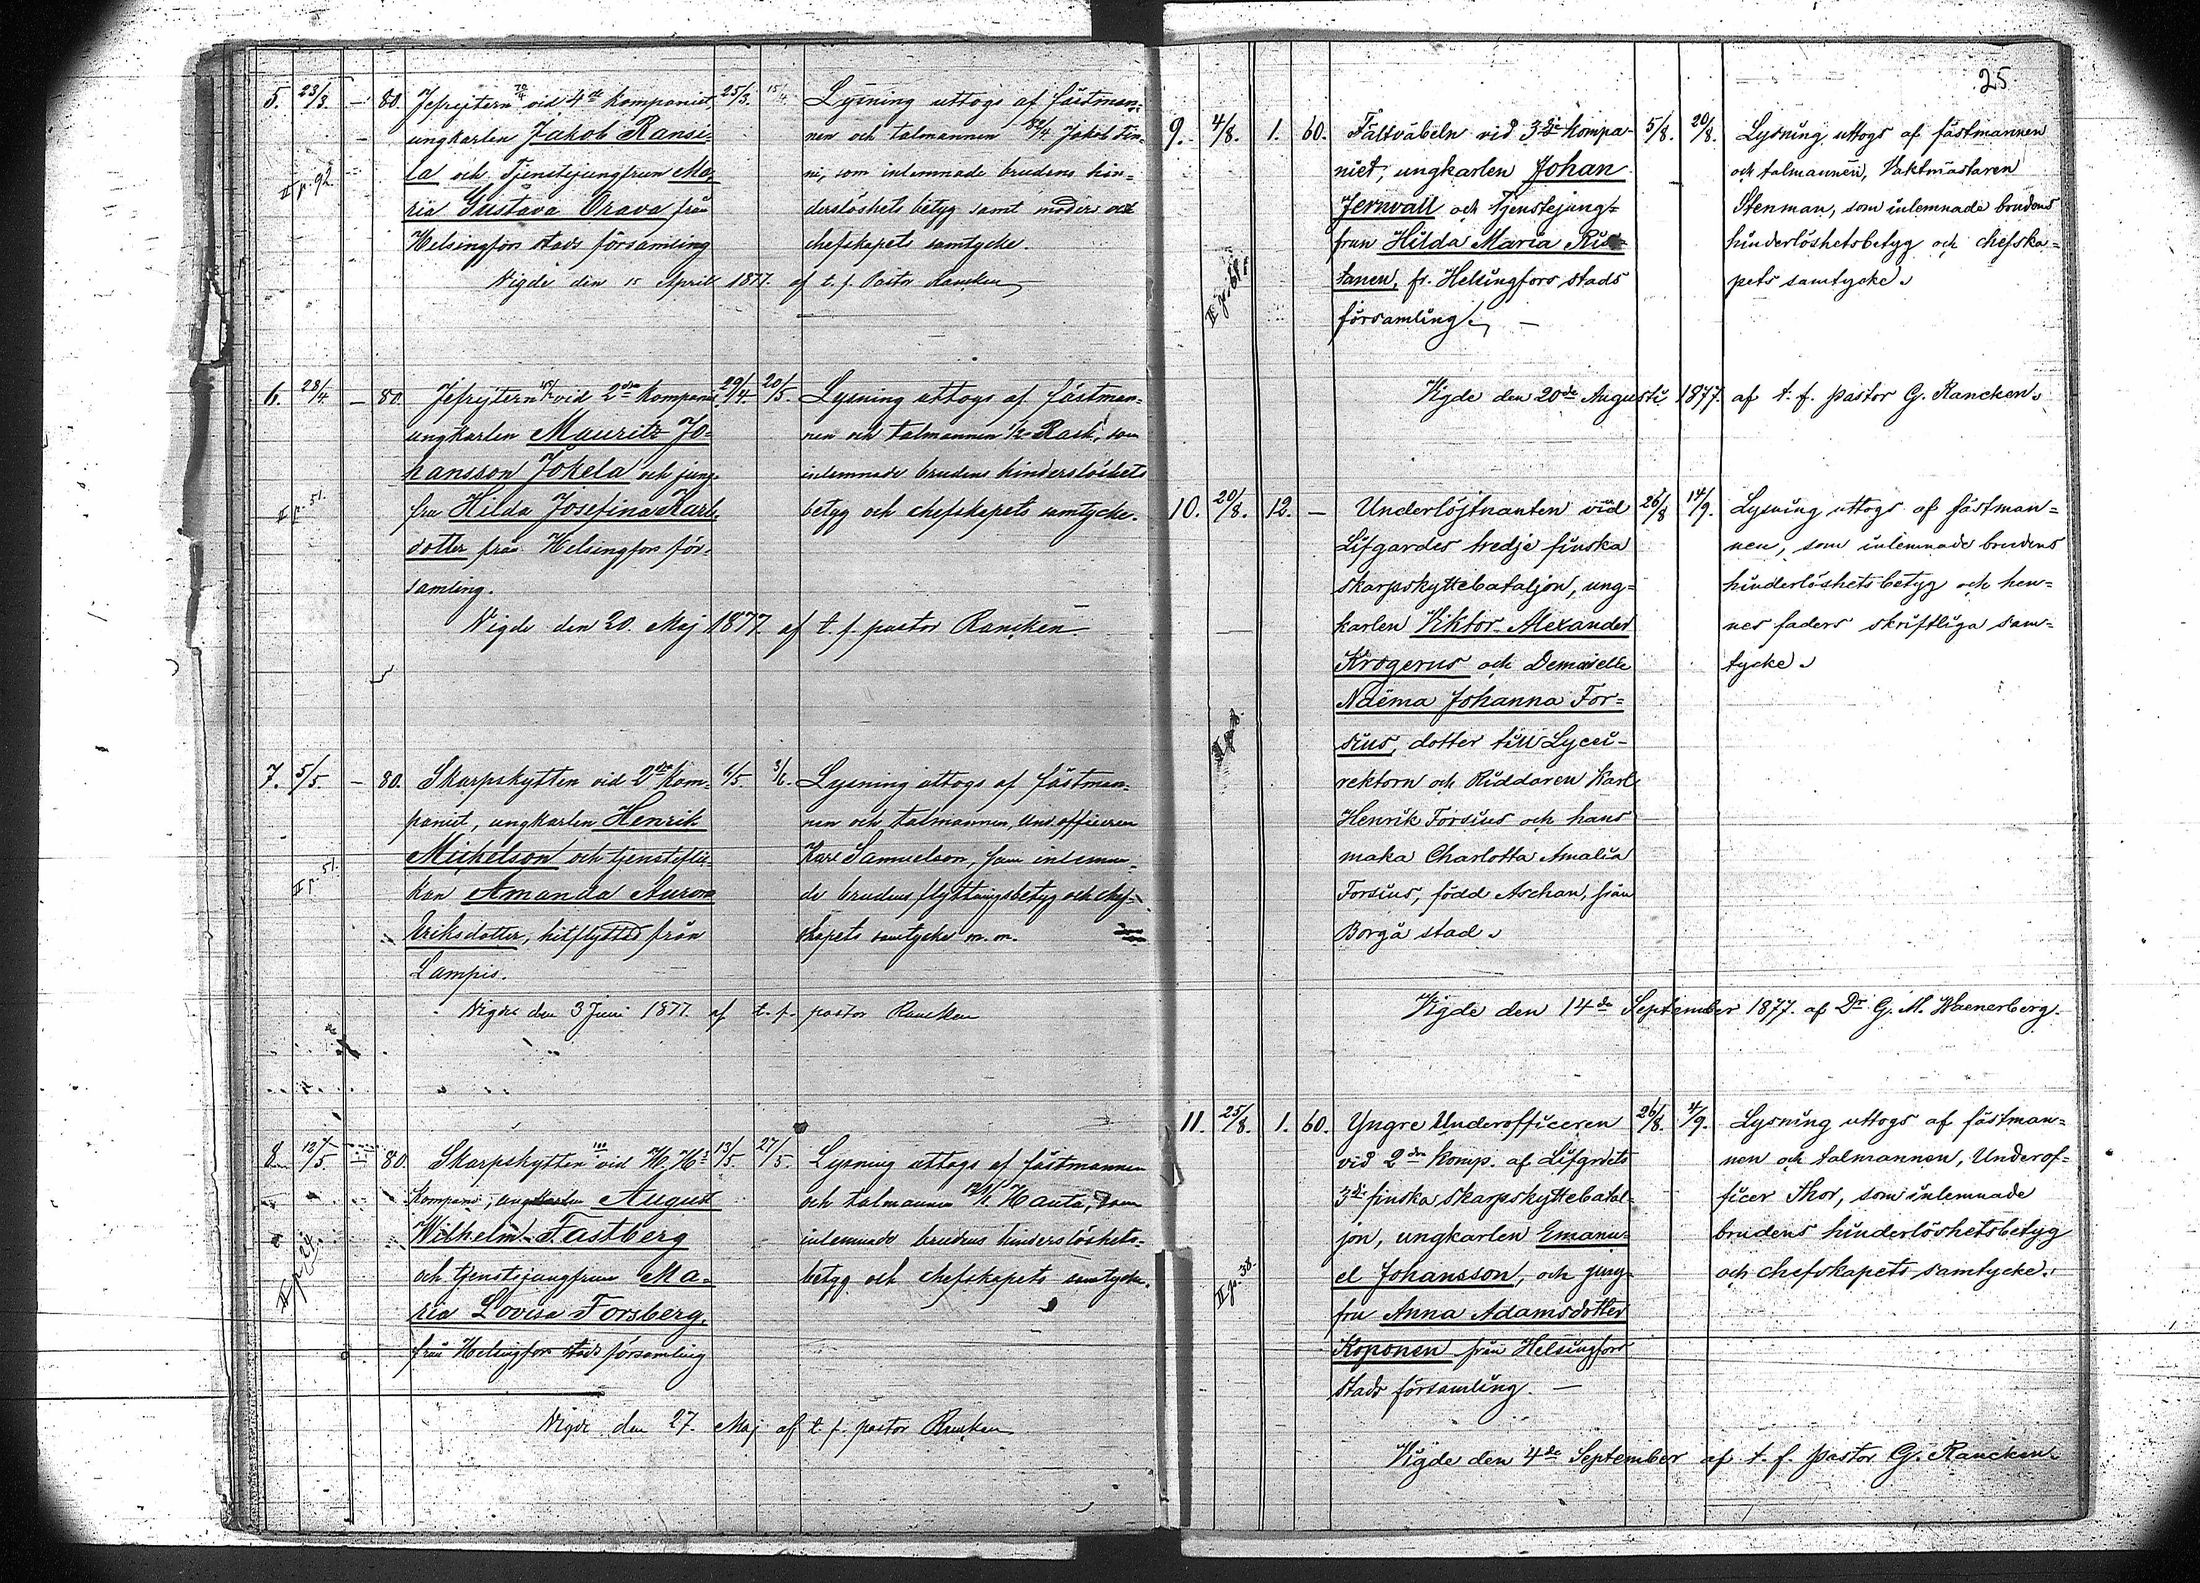 25
5. 23/3. — 80. Jefrejtern 70/4 vid 4de kompaniet, 25/3. 15/4. Lysning uttogs af fästman-
ungkarlen Jakob Ransi- nen och talmannen 82/4 Jakob Fin-
II p. 92. la och Tjenstejungfrun Ma- ni, som inlemnade brudens hin-
ria Gustava Orava från derslöshets betyg samt moders och
Helsingfors stads församling chefskapets samtycke.
Vigde den 15 April 1877. af t. f. Pastor Rancken
6. 28/4 — 80. Jefrejtern vid 2dra kompaniet 29/4. 20/5. Lysning uttogs af fästman-
ungkarlen Mauritz Jo- nen och talmannen 1/2 Rask, som
hansson Jokela och jung- inlemnade brudens hinderslöshets
II p. 51. fru Hilda Josefina Karls- betyg och chefskapets samtycke.
dotter från Helsingfors för-
samling.
Vigde den 20. Maj 1877. af t. f. pastor Rancken
7. 5/5. — 80. Skarpskytten vid 2dra kom- 6/5. 3/6. Lysning uttogs af fästman-
paniet, ungkarlen Henrik nen och talmannen, und.officeren
II p. 51. Mickelson och tjenstefli- Karl Samuelson, som inlemna-
kan Amanda Aurora de brudens flyttningsbetyg och chef-
Eriksdotter, hitflyttad från skapets samtycke m.m.
Lampis.
Vigde den 3 Juni 1877. af t. f. pastor Rancken
8. 12/5. — 80. Skarpskytten vid H. H:s 13/5. 27/5. Lysning uttogs af fästmannen
Kompani, ungkarlen August och talmannen Hauta, som
Wilhelm Fastberg inlemnade brudens hinderslöshets-
II p. 24. och tjenstejungfrun Ma- betyg och chefskapets samtycke.
ria Lovisa Forsberg,
från Helsingfors stads församling
Vigde den 27. Maj af t. f. pastor Rancken
9. 4/8. 1. 60. Fältväbeln vid 3dje kompa- 5/8. 20/8. Lysning uttogs af fästmannen
niet, ungkarlen Johan och talmannen, Vaktmästaren
Jernvall och Tjenstejung- Stenman, som inlemnade brudens
frun Hilda Maria Ris- hinderlöshetsbetyg och chefska-
II p. 61. tanen, fr. Helsingfors stads pets samtycke.
församling. —
Vigde den 20de Augusti 1877. af t. f. pastor G. Rancken.
10. 20/8. 12. — Underlöjtnanten vid 26/8 14/9. Lysning uttogs af fästman-
Lifgardes tredje finska nen, som inlemnade brudens
skarpskyttebataljon, ung- hinderlöshetsbetyg och hen-
karlen Viktor Alexander nes faders skriftliga sam-
Krogerus och Demoiselle tycke.
Naëma Johanna For-
sius, dotter till Lycei-
rektorn och Riddaren Karl
Henrik Forsius och hans
maka Charlotta Amalia
Forsius, född Aschan, från
Borgå stad.
Vigde den 14de September 1877. af Dr G. M. Waenerberg.
11. 25/8. 1. 60. Yngre Underofficeren 26/8. 4/9. Lysning uttogs af fästman-
vid 2dra Komp. af Lifgrdets nen och talmannen, Underof-
3dje finska skarpskyttebatal- ficer Thor, som inlemnade
jon, ungkarlen Emanu- brudens hinderlöshetsbetyg
II p. 38. el Johansson, och jung- och chefskapets samtycke.
fru Anna Adamsdotter
Koponen från Helsingfors
stads församling. —
Vigde den 4de September af t. f. pastor G. Rancken.